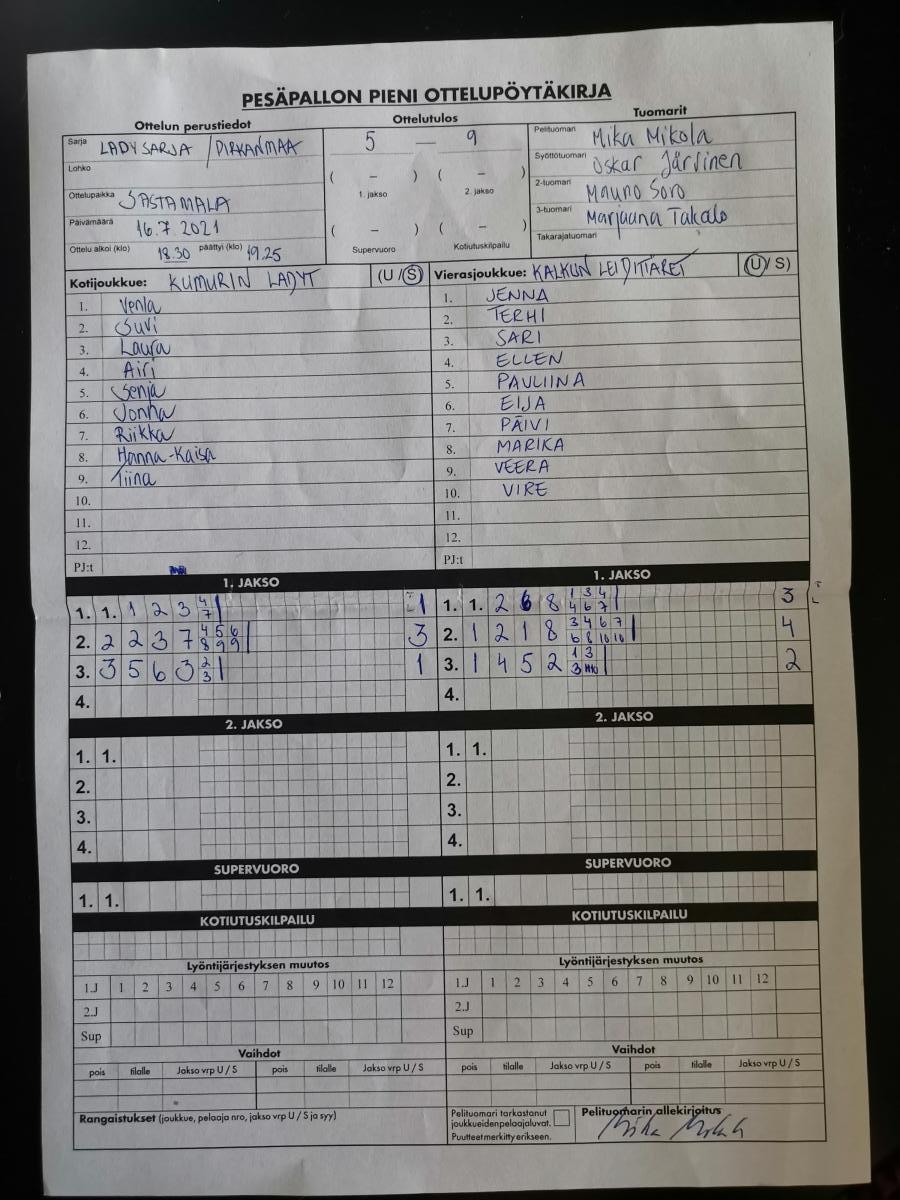 PESÄPALLON PIENI OTTELUPÖYTÄKIRJA
Ottelun perustiedot
Ottelutulos
Tuomarit
Sarja LADYSARJA / PIRKANMAA
Lohko
Ottelupaikka SASTAMALA
Päivämäärä 16.7 2021
Ottelu alkoi (klo) 18.30 päättyi (klo) 19.25
5 — 9
( – ) ( – )
1. jakso 2. jakso
( – ) ( – )
Supervuoro Kotiutuskilpailu
Pelituomari Mika Mikola
Syöttötuomari Oskar Järvinen
2-tuomari Mauno Soro
3-tuomari Marjaana Takalo
Takarajatuomari
Kotijoukkue: KUMURIN LADYT (U / S)
1. Venla
2. Suvi
3. Laura
4. Airi
5. Senja
6. Jonna
7. Riikka
8. Hanna-Kaisa
9. Tiina
10.
11.
12.
PJ:t
Vierasjoukkue: KALKUN LEIDITTÄRET (U / S)
1. JENNA
2. TERHI
3. SARI
4. ELLEN
5. PAULIINA
6. EIJA
7. PÄIVI
8. MARIKA
9. VEERA
10. VIRE
11.
12.
PJ:t
1. JAKSO
1. 1. 1 2 3 4 7 1
2. 2 2 3 7 4 5 6 8 9 9 3
3. 3 5 6 3 2 3 1
4.
1. JAKSO
1. 1. 2 6 8 1 3 4 4 6 7 3
2. 1 2 1 8 3 4 6 7 6 8 10 10 4
3. 1 4 5 2 1 3 3 2
4.
2. JAKSO
1. 1.
2.
3.
4.
2. JAKSO
1. 1.
2.
3.
4.
SUPERVUORO
1. 1.
SUPERVUORO
1. 1.
KOTIUTUSKILPAILU
KOTIUTUSKILPAILU
Lyöntijärjestyksen muutos
1.J 1 2 3 4 5 6 7 8 9 10 11 12
2.J
Sup
Lyöntijärjestyksen muutos
1.J 1 2 3 4 5 6 7 8 9 10 11 12
2.J
Sup
Vaihdot
pois tilalle Jakso vrp U / S pois tilalle Jakso vrp U / S
Vaihdot
pois tilalle Jakso vrp U / S pois tilalle Jakso vrp U / S
Rangaistukset (joukkue, pelaaja nro, jakso vrp U / S ja syy)
Pelituomari tarkastanut
joukkueiden pelaajaluvat.
Puutteet merkitty erikseen.
Pelituomarin allekirjoitus